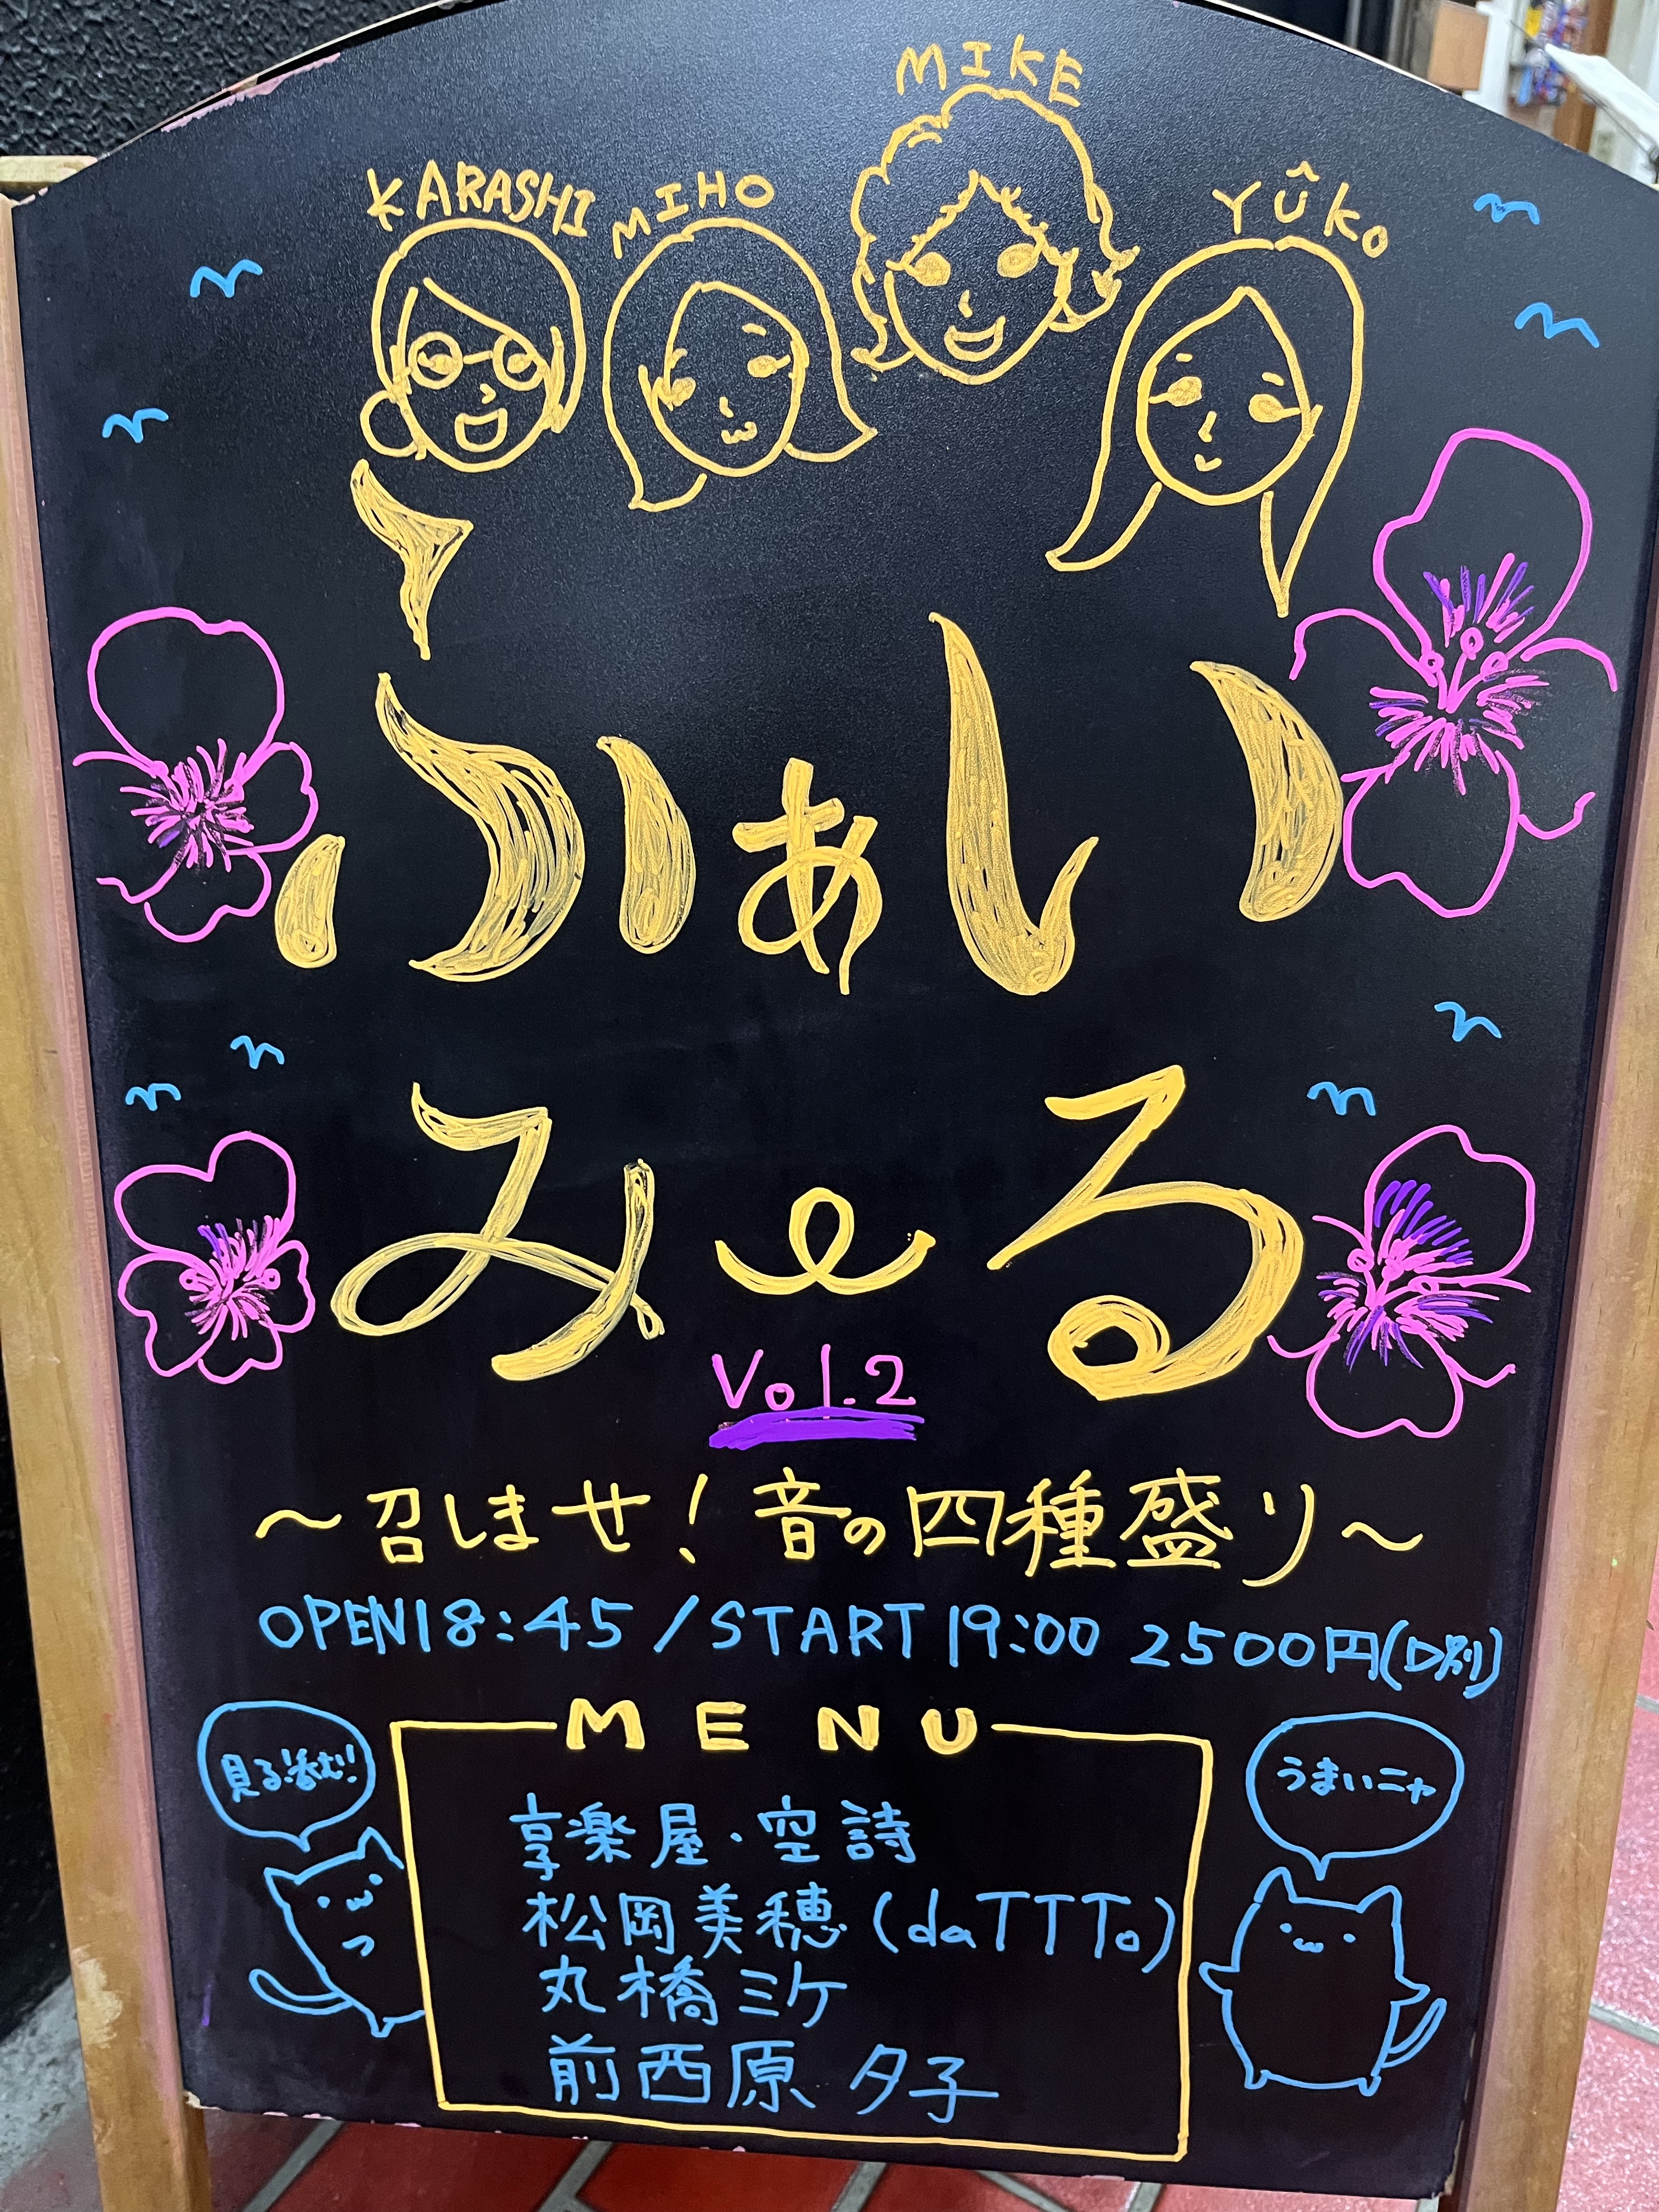 MIKE
KARASHI MIHO YÛKO
ふぁい
み〜る
Vol.2
〜召しませ!音の四種盛り〜
OPEN18:45/START19:00 2500円(D別)
MENU
見る!呑む!
うまいニャ
享楽屋・空詩
松岡美穂(daTTTo)
丸橋ミケ
前西原 夕子